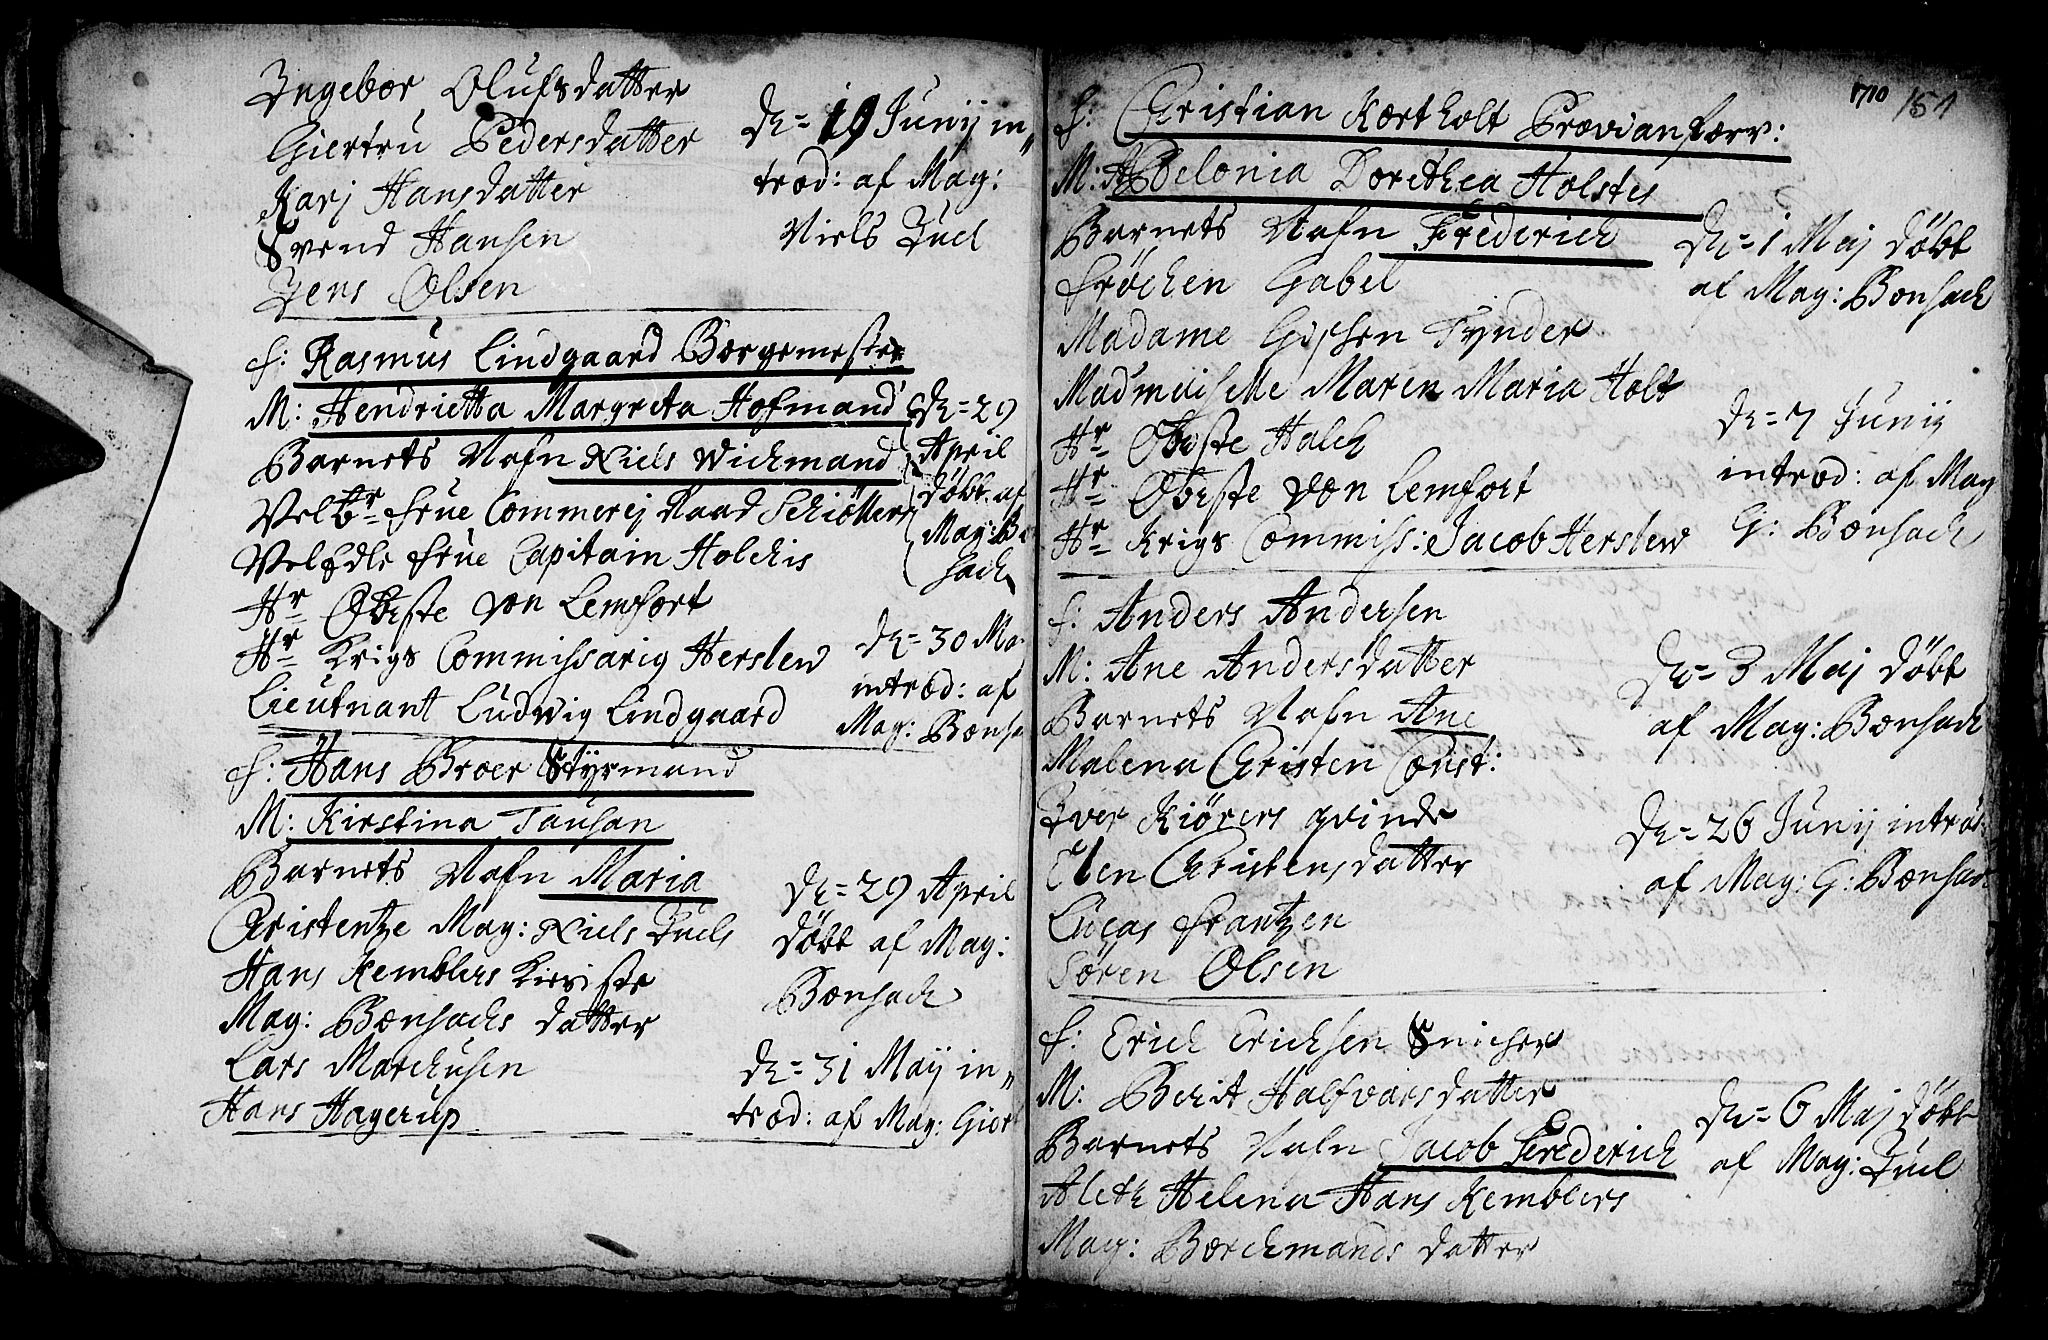 Ingebor Olufsdatter
Giertru Pedersdatter
Karj Hansdatter
Svend Hansen
Jens Olsen
De= 19 Junij in„
trod: af Mag:
Niels Juel
f: Rasmus Lindgaard Borgemester
M: Hendrietta Margreta Hofmand
Barnets Nafn Niels Wichmand
Velbr frue Commercj Raad Schiøtters
VelEdle frue Capitain Holchis
Hr Obrste von Lemfort
Hr Krigs Commissarig Herslew
Lieutnant Ludwig Lindgaard
De= 29
April
døbt af
Mag: Bon
sach
De= 30 Ma
introd: af
Mag: Bonsa
f: Hans Broer Styrmand
M: Kirstina Tausan
Barnets Nafn Maria
Christentze Mag: Niels Juels
Hans Kemblers Kieriste
Mag: Bonsachs datter
Lars Marchusen
Hans Hagerup
De= 29 April
døbt af Mag:
Bonsach
De= 31 Maij in„
trod: af Mag: Giort
1710 151
f: Christian Kortholt Provianforv:
M: Abelonia Dorethea Holstes
Barnets Nafn Frederich
frøchen Gabel
Madame Gissen Tynder
Madmuiselle Maren Maria Holt
Hr Obrste Halch
Hr Obrste von Lemfort
Hr Krigs Commiss: Jacob Herslew
De= 1 Maj døbt
af Mag: Bonsach
De= 7 Junij
introd: af Mag
G: Bonsach
f: Anders Andersen
M: Ane Andersdatter
Barnets Nafn Ane
Malena Christen Const:
Iver Kiørers qvinde
Elen Christensdatter
Lucas frantzen
Søren Olsen
De= 3 Maj døbt
af Mag: Bonsach
De= 26 Junij introd:
af Mag: G: Bonsach
f: Erich Erichsen Snicher
M: Berit Halfvarsdatter
Barnets Nafn Jacob Frederich
Aleth Helena Hans Kemblers
Mag: Borchmands datter
De= 6 Maj døbt
af Mag: Juel